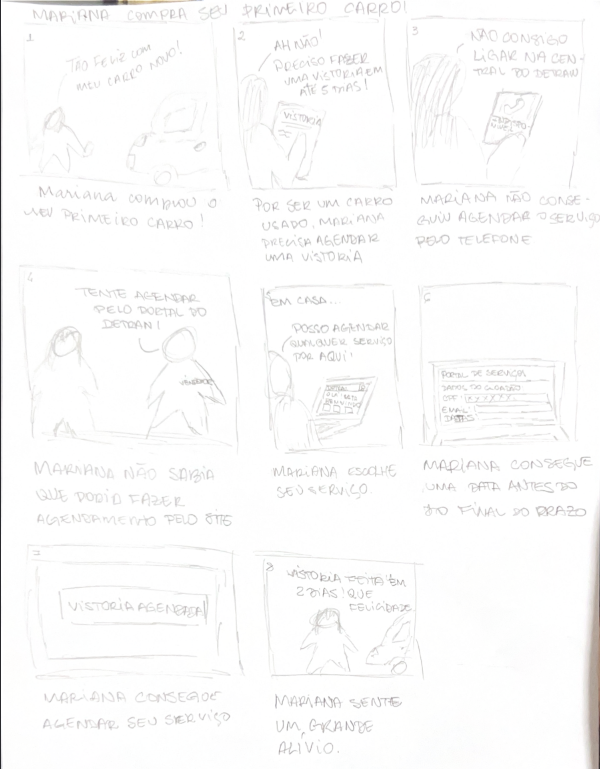 MARIANA COMPRA SEU PRIMEIRO CARRO!
1
TÃO FELIZ COM
MEU CARRO NOVO!
Mariana comprou o
MEU PRIMEIRO CARRO!
2
AH NÃO!
PRECISO FAZER
UMA VISTORIA EM
ATÉ 5 DIAS!
VISTORIA
POR SER UM CARRO
USADO, MARIANA
PRECISA AGENDAR
UMA VISTORIA
3
NÃO CONSIGO
LIGAR NA CEN-
TRAL DO DETRAN
MARIANA NÃO CONSE-
GUIU AGENDAR O SERVIÇO
PELO TELEFONE
4
TENTE AGENDAR
PELO PORTAL DO
DETRAN!
VENDEDOR
MARIANA NÃO SABIA
QUE PODIA FAZER
AGENDAMENTO PELO SITE
5
EM CASA...
POSSO AGENDAR
QUALQUER SERVIÇO
POR AQUI!
MARIANA ESCOLHE
SEU SERVIÇO.
6
PORTAL DE SERVIÇOS
DADOS DO CIDADÃO
CPF:
EMAIL:
DATAS
MARIANA CONSEGUE
UMA DATA ANTES DO
DO FINAL DO PRAZO
7
VISTORIA AGENDADA
MARIANA CONSEGUE
AGENDAR SEU SERVIÇO
8
VISTORIA FEITA EM
2 DIAS! QUE
FELICIDADE
MARIANA SENTE
UM GRANDE
ALIVIO.